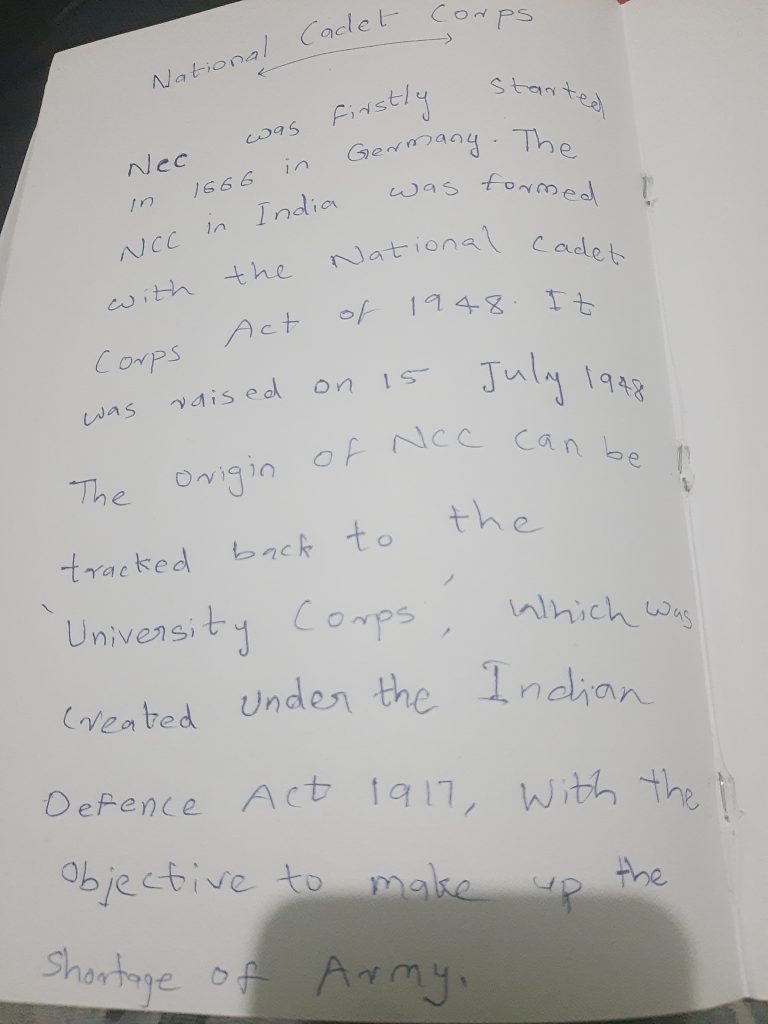 National Cadet Corps
Ncc was firstly started
in 1666 in Germany. The
NCC in India was formed
with the National Cadet
Corps Act of 1948. It
was raised on 15 July 1948
The origin of NCC can be
tracked back to the
'University Corps', which was
created under the Indian
Defence Act 1917, with the
objective to make up the
shortage of Army.